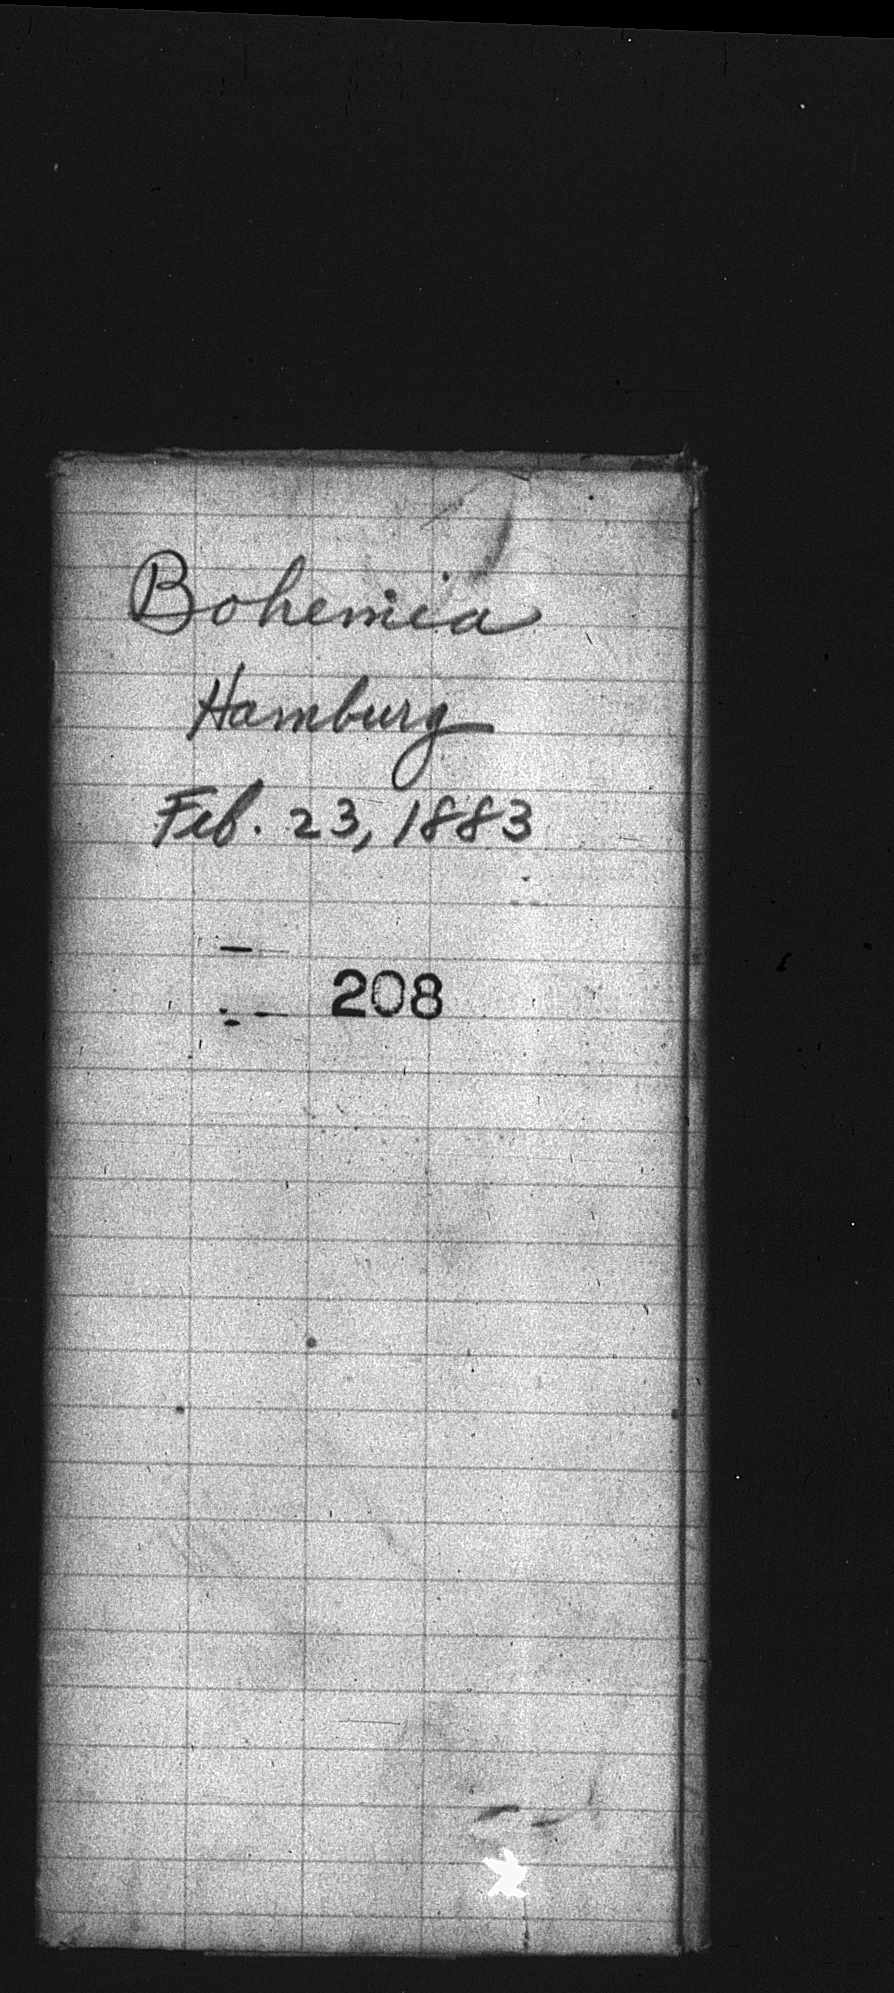 Bohemia
Hamburg
Feb. 23, 1883
208